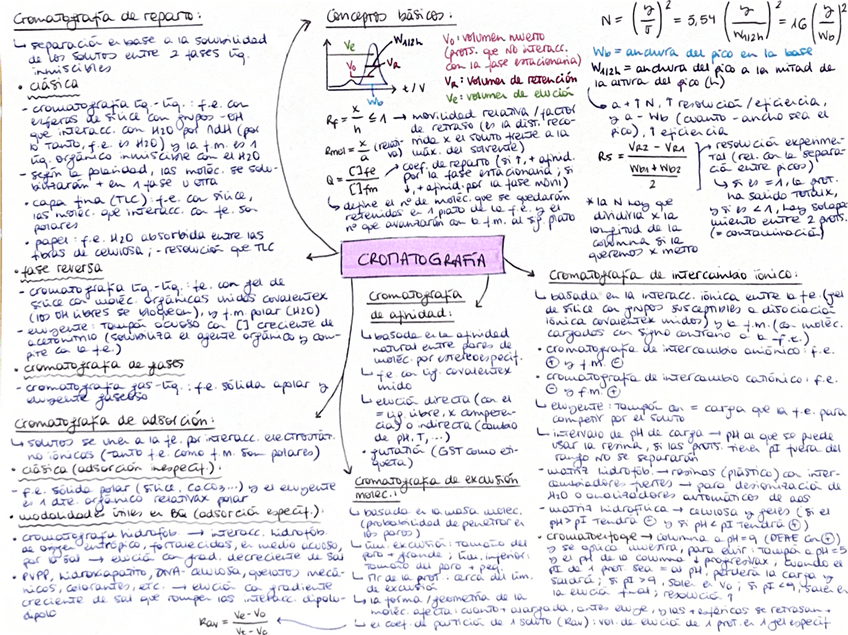 Cromatografía de reparto:
↳ separación en base a la solubilidad
de los solutos entre 2 fases líq.
inmiscibles
• clásica
- cromatografía líq.-líq.: f.e. con
esferas de sílice con grupos -OH
que interacc. con H2O por 
lo tanto, f.e. es H2O) y la f.m. es 1
líq. orgánico inmiscible con el H2O
- según la polaridad, las moléc. se solu-
bilizarán + en 1 fase u otra
- capa fina (TLC): f.e. con sílice,
las moléc. que interacc. con f.e. son
polares
- papel: f.e. H2O absorbida entre las
fibras de celulosa; - resolución que TLC
• fase reversa
- cromatografía líq.-líq.: f.e. con gel de
sílice con moléc. orgánicas unidas covalentex
(los OH libres se bloquean), y f.m. polar (H2O)
- eluyente: tampón acuoso con [] creciente de
acetonitrilo (solubiliza el agente orgánico y com-
pite con la f.e.)
• cromatografía de gases
- cromatografía gas-líq.: f.e. sólida apolar y
eluyente gaseoso
Cromatografía de adsorción:
↳ solutos se unen a la f.e. por interacc. electrostát.
no iónicas (tanto f.e. como f.m. son polares)
• clásica (adsorción inespecíf.):
- f.e. sólida polar (sílice, CaCO3...) y el eluyente
es 1 dte. orgánico relativax polar
• modalidades útiles en BQ (adsorción específ.):
• cromatografía hidrofób. → interacc. hidrofób.
de origen entrópico, fortalecidos, en medio acuoso,
por la sal → elución con grad. decreciente de sal
• PVPP, hidroxiapatito, DNA-celulosa, quelatos metá-
licos, colorantes, etc. → elución con gradiente
creciente de sal que rompen las interacc. dipolo-
dipolo
Kav = (Ve - Vo) / (Vt - Vo)
Conceptos básicos:
Ve W1/2h
Vo VR
Wb t/V
Vo: volumen muerto
(prots. que no interacc.
con la fase estacionaria)
VR: Volumen de retención
Ve: volumen de elución
Rf = x/h ≤ 1 → movilidad relativa / factor
de retraso (es la dist. reco-
rrida x el soluto frente a la
máx. del solvente)
Q = []fe / []fm → coef. de reparto (si ↑, + afinid.
por la fase estacionaria; si
↓, + afinid. por la fase móvil)
↳ define el nº de moléc. que se quedarán
retenidas en 1 plato de la f.e. y el
nº que avanzarán con la f.m. al sig. plato
N = (y/σ)² = 5,54 (y/W1/2h)² = 16 (y/Wb)²
Wb = anchura del pico en la base
W1/2h = anchura del pico a la mitad de
la altura del pico (h)
↳ a + ↑ N, ↑ resolución / eficiencia,
y a - Wb (cuanto - ancho sea el
pico), ↑ eficiencia
RS = (VR2 - VR1) / ((Wb1 + Wb2) / 2)
→ resolución experimen-
tal (rel. con la separa-
ción entre picos)
↳ si es = 1, la prot.
ha salido totalx,
y si es < 1, hay solapa-
miento entre 2 prots.
(= contaminación)
* la N hay que
dividirla x la
longitud de la
columna si la
queremos x metro
CROMATOGRAFÍA
Cromatografía
de afinidad:
↳ basada en la afinidad
natural entre pares de
moléc. por estereoespecif.
↳ f.e con lig. covalentex
unido
↳ elución directa (con el
= lig. libre, x competen-
cia) o indirecta (cambio
de pH, T, ...)
↳ glutatión (GST como eti-
queta)
Cromatografía de exclusión
moléc.:
↳ basada en la masa moléc.
(probabilidad de penetrar en
los poros)
↳ lím. exclusión: tamaño del
poro + grande; lím. inferior:
tamaño del poro + peq.
↳ Mr de la prot. cerca del lím.
de exclusión
↳ la forma / geometría de la
moléc. afecta: cuanto + alargada, antes eluye, y las + esféricas se retrasan +
↳ el coef. de partición de 1 soluto (Kav): vol. de elución de 1 prot. en 1 gel específ
Cromatografía de intercambio iónico:
↳ basada en la interacc. iónica entre la f.e. (gel
de sílice con grupos susceptibles a disociación
iónica covalentex unidos) y la f.m. (con moléc.
cargadas con signo contrario a la f.e.)
• cromatografía de intercambio aniónico: f.e.
⊕ y f.m. ⊖
• cromatografía de intercambio catiónico: f.e.
⊖ y f.m. ⊕
↳ eluyente: tampón con = carga que la f.e. para
competir por el soluto
↳ intervalo de pH de carga → pH al que se puede
usar la resina, si las prots. tienen pI fuera del
rango no se separarán
- matriz hidrofób. → resinas (plástico) con inter-
cambiadores fuertes → para desionización de
H2O o analizadores automáticos de aas
- matriz hidrofílica → celulosa y geles (si el
pH > pI tendrá ⊖ y si pH < pI tendrá ⊕)
• cromatoenfoque → columna a pH = 9 (DEAE con ⊕)
y se aplica muestra, para eluir: tampón a pH = 5
y el pH de la columna ↓ progresivax, cuando el
pI de 1 prot. sea = al pH, perderá la carga y
saldrá; si pI > 9, sale en Vo; si pI < 9, sale en
la elución final; resolución ↑